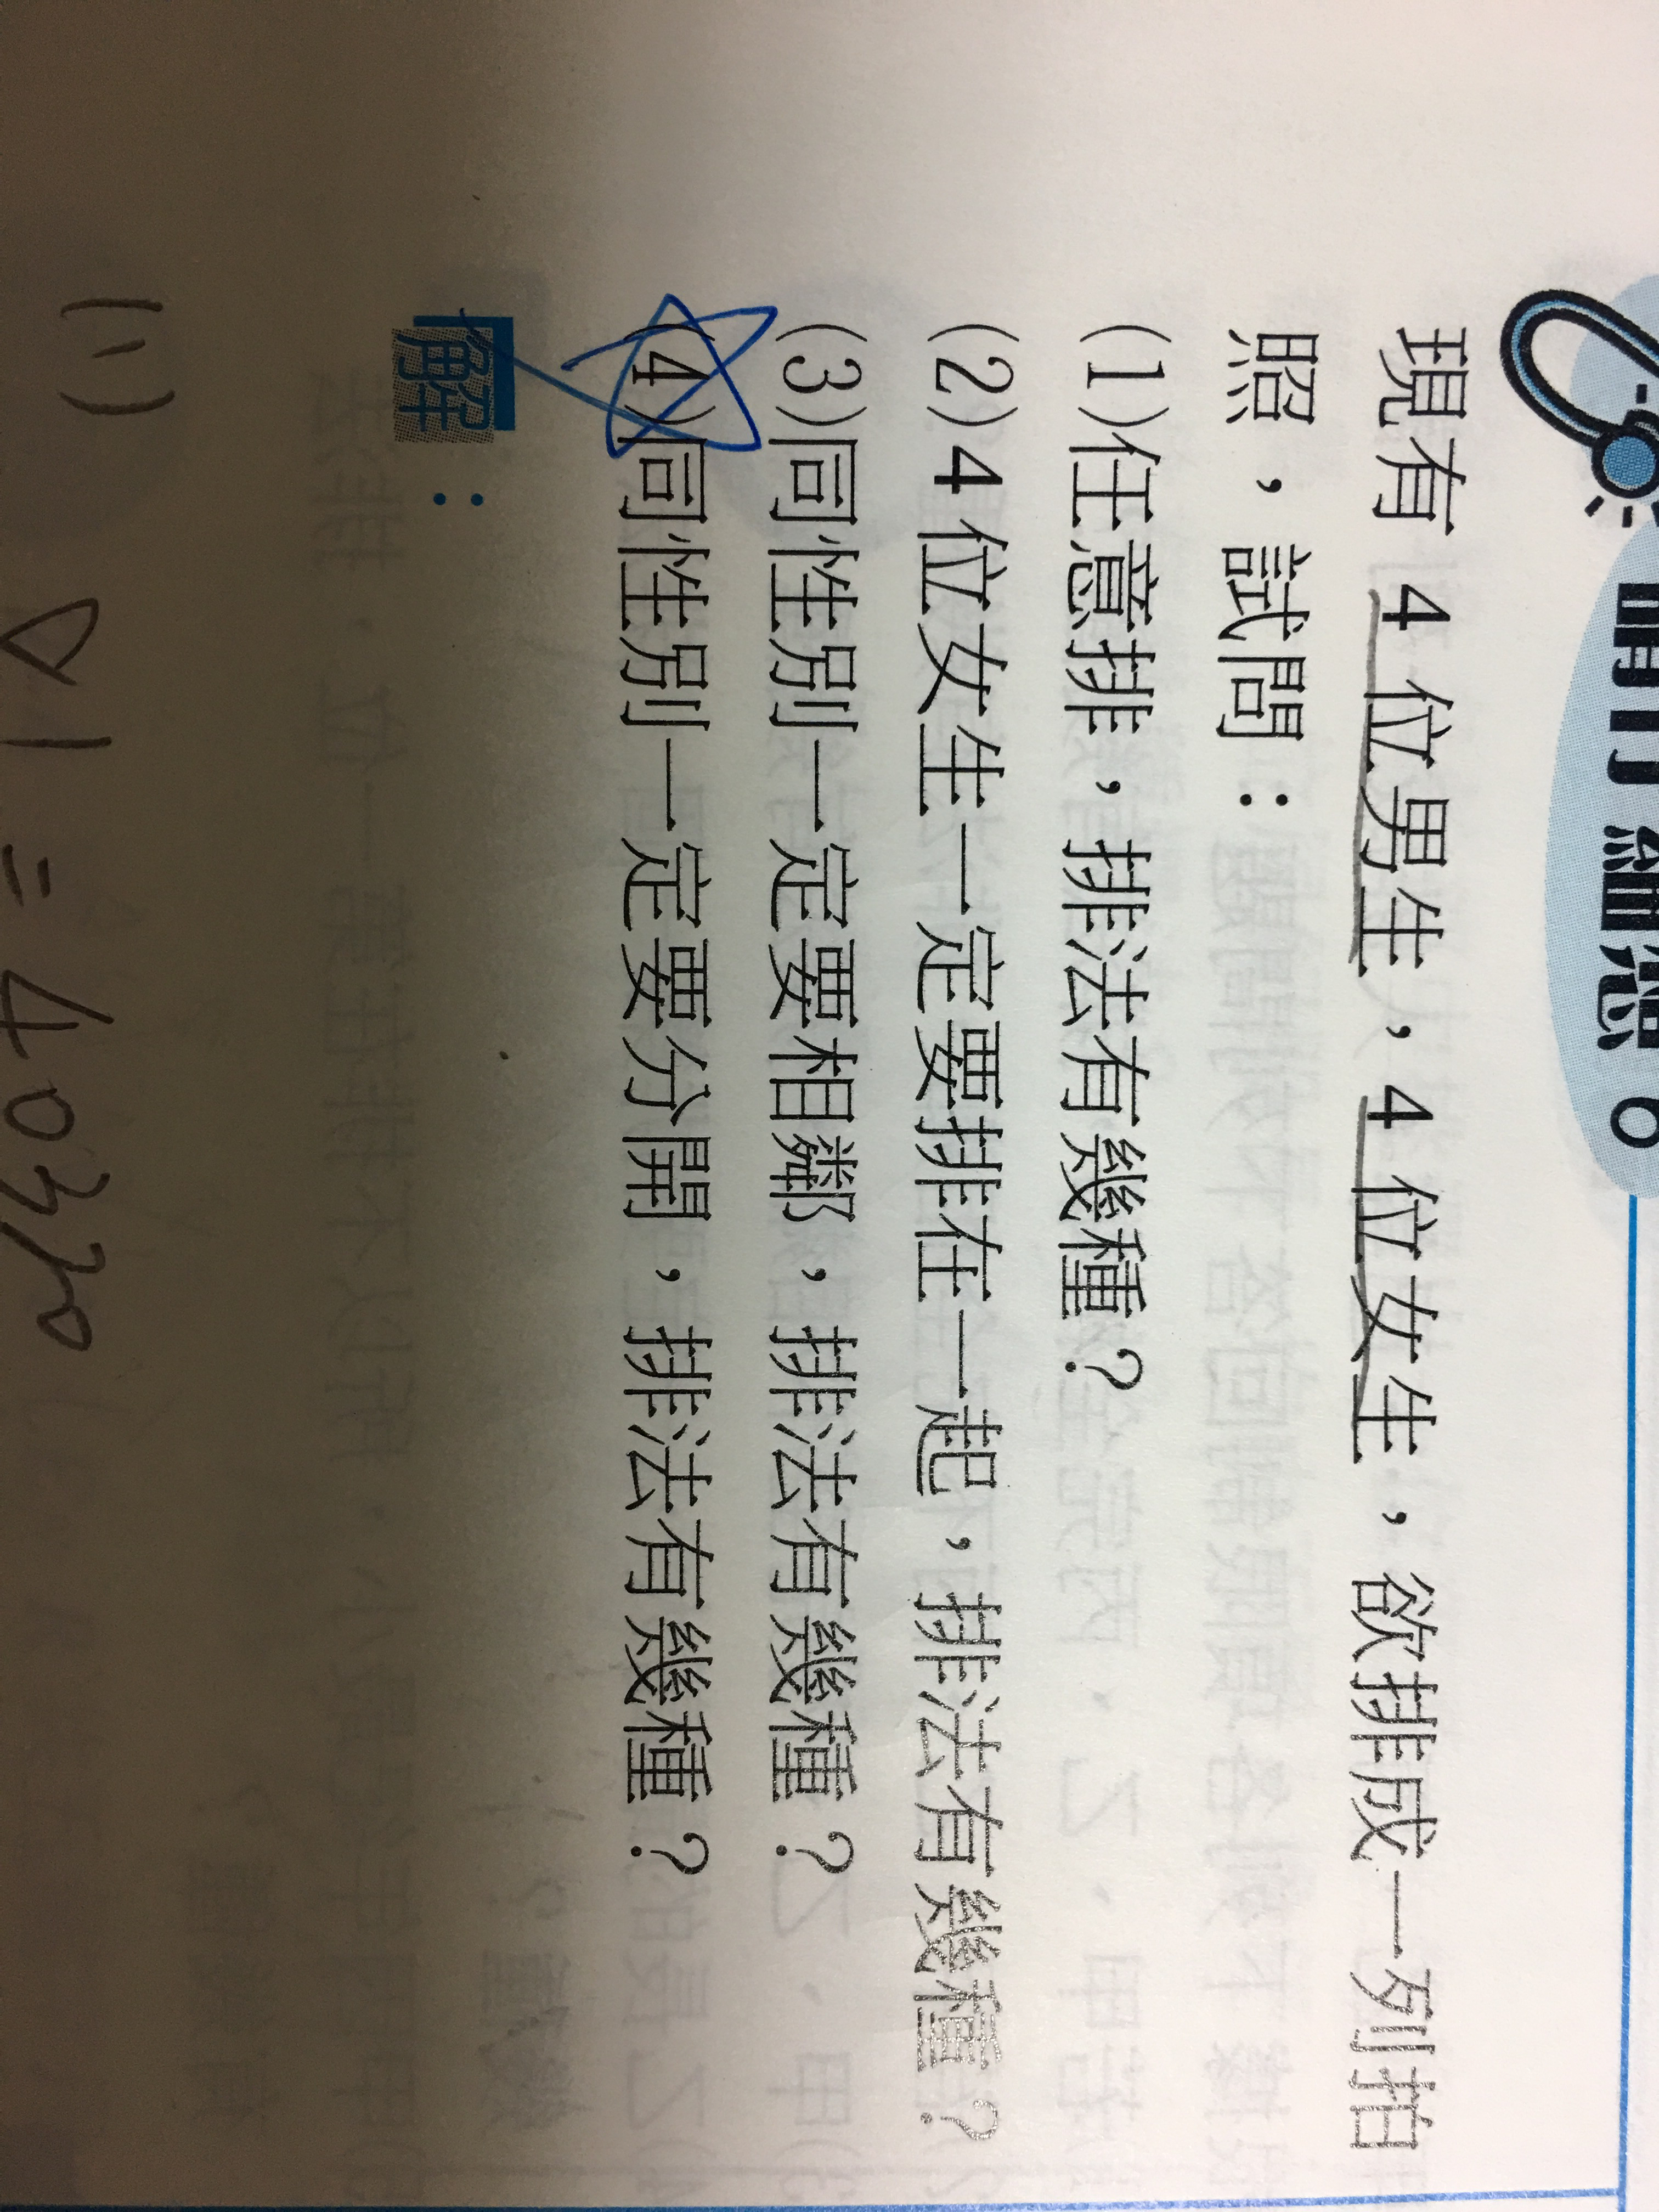 6
現有 4 位男生，4 位女生，欲排成一列拍
照，試問：
(1)任意排，排法有幾種？
(2)4 位女生一定要排在一起，排法有幾種？
(3)同性別一定要相鄰，排法有幾種？
(4)同性別一定要分開，排法有幾種？
解：
(1)
= 4032